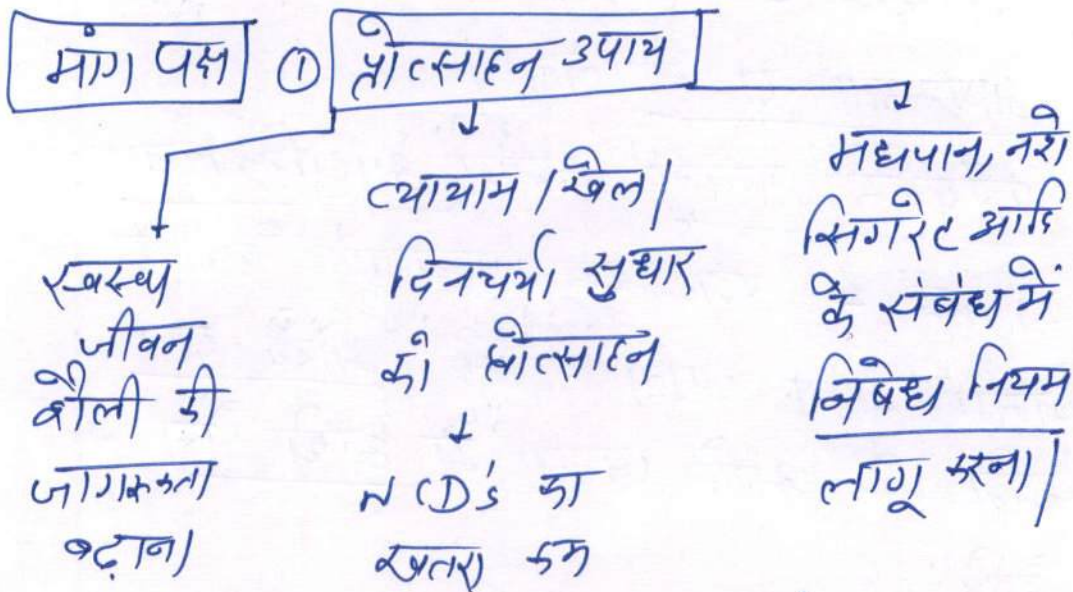 मांग पक्ष ① प्रोत्साहन उपाय
स्वस्थ्य
जीवन
शैली की
जागरूकता
बढ़ाना
व्यायाम / खेल /
दिनचर्या सुधार
को प्रोत्साहन
NCD's का
खतरा कम
मद्यपान, नशे
सिगरेट आदि
के संबंध में
निषेध नियम
लागू करना।